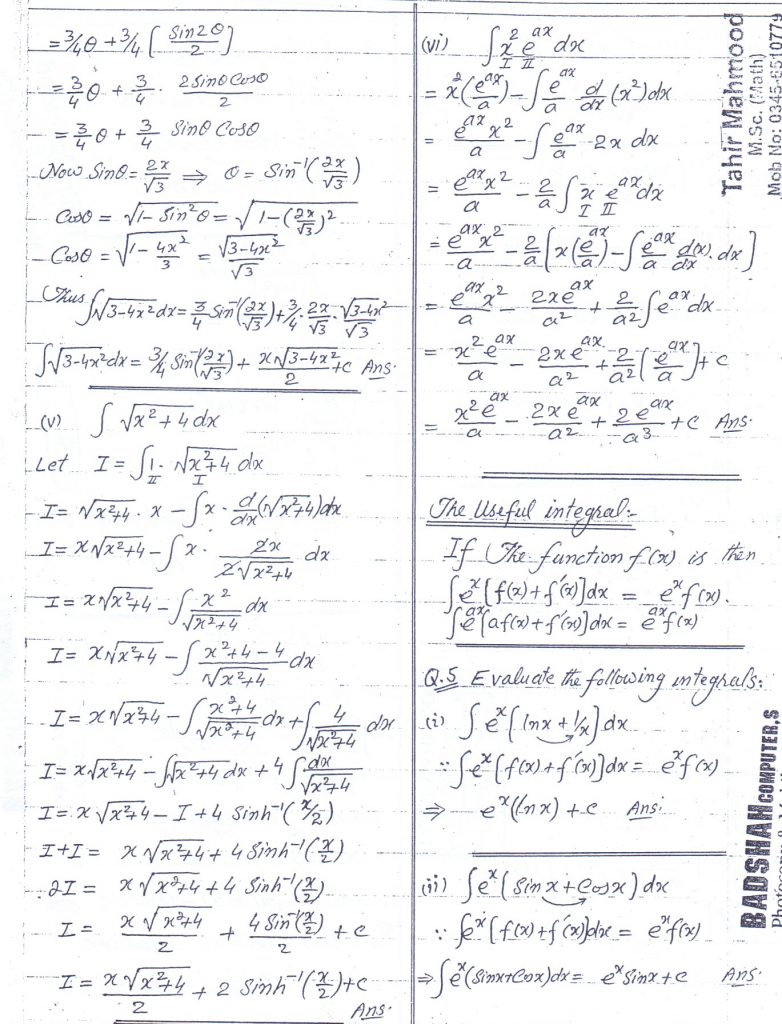 = 3/4 θ + 3/4 [ Sin2θ / 2 ]
= 3/4 θ + 3/4 · 2 Sinθ Cosθ / 2
= 3/4 θ + 3/4 Sinθ Cosθ
Now Sinθ = 2x/√3 ⇒ θ = Sin⁻¹(2x/√3)
Cosθ = √(1 - Sin²θ) = √(1-(2x/√3)²)
Cosθ = √(1 - 4x²/3) = √(3-4x²)/√3
Thus ∫√(3-4x²) dx = 3/4 Sin⁻¹(2x/√3) + 3/4 · 2x/√3 · √(3-4x²)/√3
∫√(3-4x²) dx = 3/4 Sin⁻¹(2x/√3) + x√(3-4x²)/2 + c Ans.
(v) ∫ √(x²+4) dx
Let I = ∫ 1 · √(x²+4) dx
II I
I = √(x²+4) · x - ∫ x · d/dx (√(x²+4)) dx
I = x√(x²+4) - ∫ x · 2x / 2√(x²+4) dx
I = x√(x²+4) - ∫ x²/√(x²+4) dx
I = x√(x²+4) - ∫ (x²+4-4)/√(x²+4) dx
I = x√(x²+4) - ∫ (x²+4)/√(x²+4) dx + ∫ 4/√(x²+4) dx
I = x√(x²+4) - ∫√(x²+4) dx + 4 ∫ dx/√(x²+4)
I = x√(x²+4) - I + 4 Sinh⁻¹(x/2)
I+I = x√(x²+4) + 4 Sinh⁻¹(x/2)
2I = x√(x²+4) + 4 Sinh⁻¹(x/2)
I = x√(x²+4)/2 + 4 Sin⁻¹(x/2)/2 + c
I = x√(x²+4)/2 + 2 Sinh⁻¹(x/2) + c
Ans.
(vi) ∫ x² e^ax dx
I II
= x²(e^ax/a) - ∫ e^ax/a d/dx (x²) dx
= e^ax x²/a - ∫ e^ax/a · 2x dx
= e^ax x²/a - 2/a ∫ x e^ax dx
I II
= e^ax x²/a - 2/a [ x(e^ax/a) - ∫ e^ax/a d(x)/dx · dx ]
= e^ax x²/a - 2x e^ax/a² + 2/a² ∫ e^ax dx
= x² e^ax/a - 2x e^ax/a² + 2/a² [ e^ax/a ] + c
= x² e^ax/a - 2x e^ax/a² + 2e^ax/a³ + c Ans.
The Useful integral:-
If The function f(x) is then
∫ e^x [f(x) + f'(x)] dx = e^x f(x).
∫ e^ax [af(x) + f'(x)] dx = e^ax f(x)
Q.5 Evaluate the following integrals:
(i) ∫ e^x [ lnx + 1/x ] dx
∵ ∫ e^x [f(x) + f'(x)] dx = e^x f(x)
⇒ e^x (ln x) + c Ans.
(ii) ∫ e^x ( Sinx + Cosx ) dx
∵ ∫ e^x [f(x) + f'(x)] dx = e^x f(x)
⇒ ∫ e^x (Sinx + Cosx) dx = e^x Sinx + c Ans.
Tahir Mahmood
M.Sc. (Math)
Mob No: 0345-6510779
BADSHAH COMPUTER,S